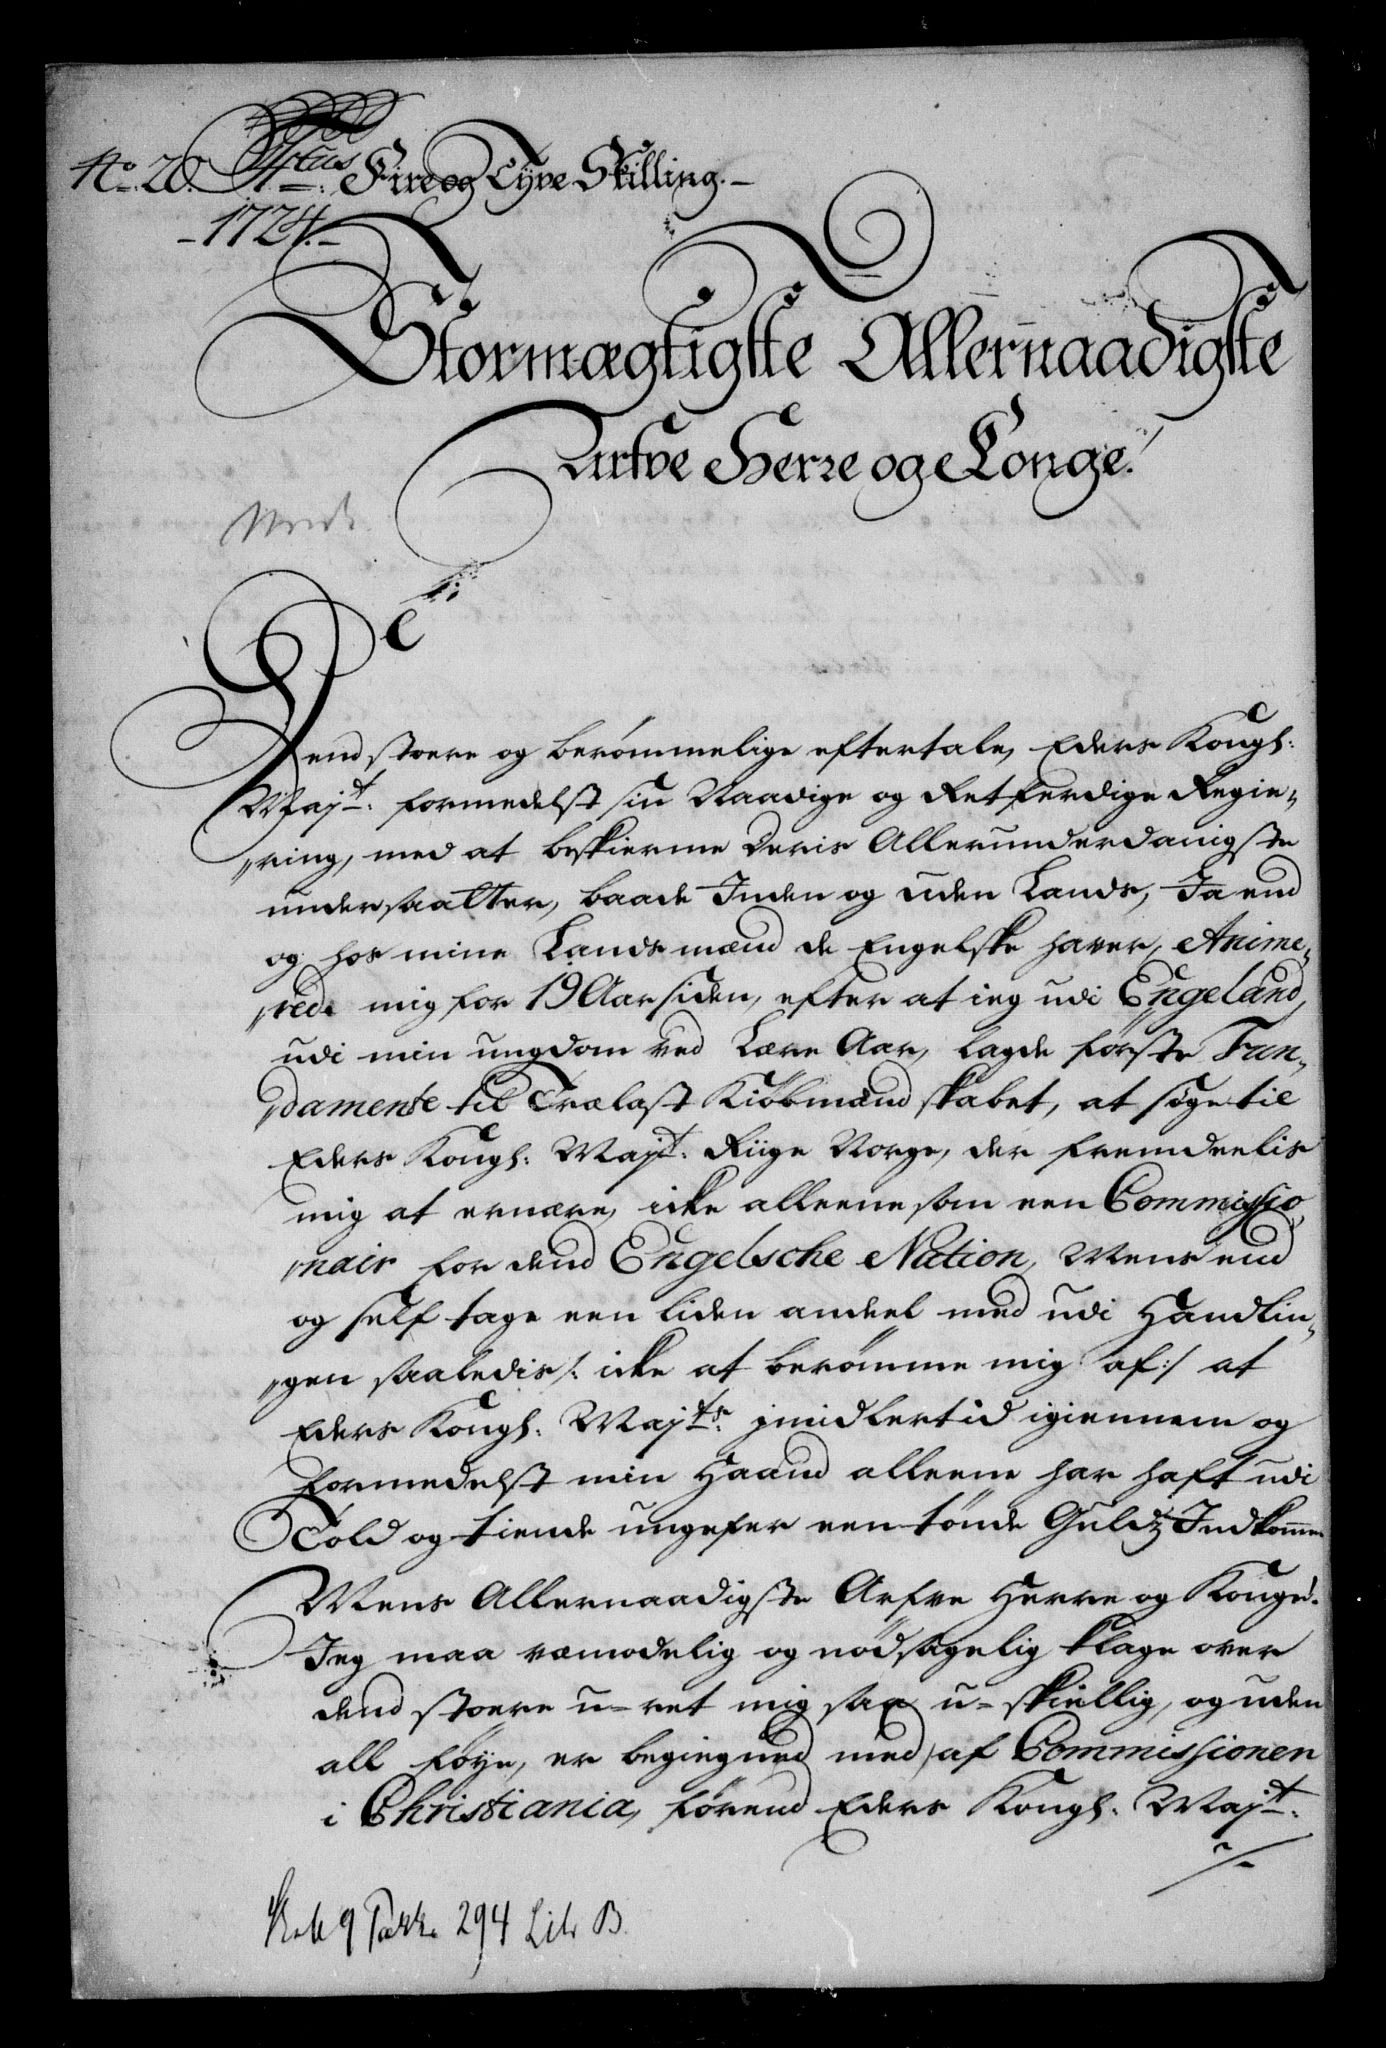 No. 20. 4tus Fire og Tyve Skilling.
-1724.-
Stormægtigste Allernaadigste
Arfve Herre og Konge!
Dend stoere og berömmelige eftertale, Eders Kongl:
Majt: formedelst sin Naadige og Retferdige Regie„
„ring, med at beskierme Deris Allerunderdanigste
undersaatter, baade Inden og uden Lands, Ja end
og hos mine Landsmænd de Engelske haver, Anime„
„red mig for 19 Aar siden, efter at ieg udi Engeland,
udi min ungdom ved Lære Aar, lagde förste Fun„
„damente til Trælast Kiöbmandskabet, at söge til
Eders Kongl: Majt: Riige Norge, der fremdeelis
mig at ernære, icke alleene som een Commissio„
„nair for dend Engelsche Nation, Mens end
og self tage een liden andeel med udi Handlin„
„gen saaledis /: icke at berömme mig af :/ at
Eders Kongl: Majts: jmidlertid igiennem og
formedelst min Haand alleene har haft udi
Told og tiende ungefer een tönde Guldz Indkomme
Mens Allernaadigste Arfve Herre og Konge!
Jeg maa væmodelig og nödsagelig klage over
dend stoere u-ret mig saa u-skiellig, og uden
all föye, er begiegned med, af Commissionen
i Christiania, förend Eders Kongl: Majt:
9 Pakke 294 Lit. B.